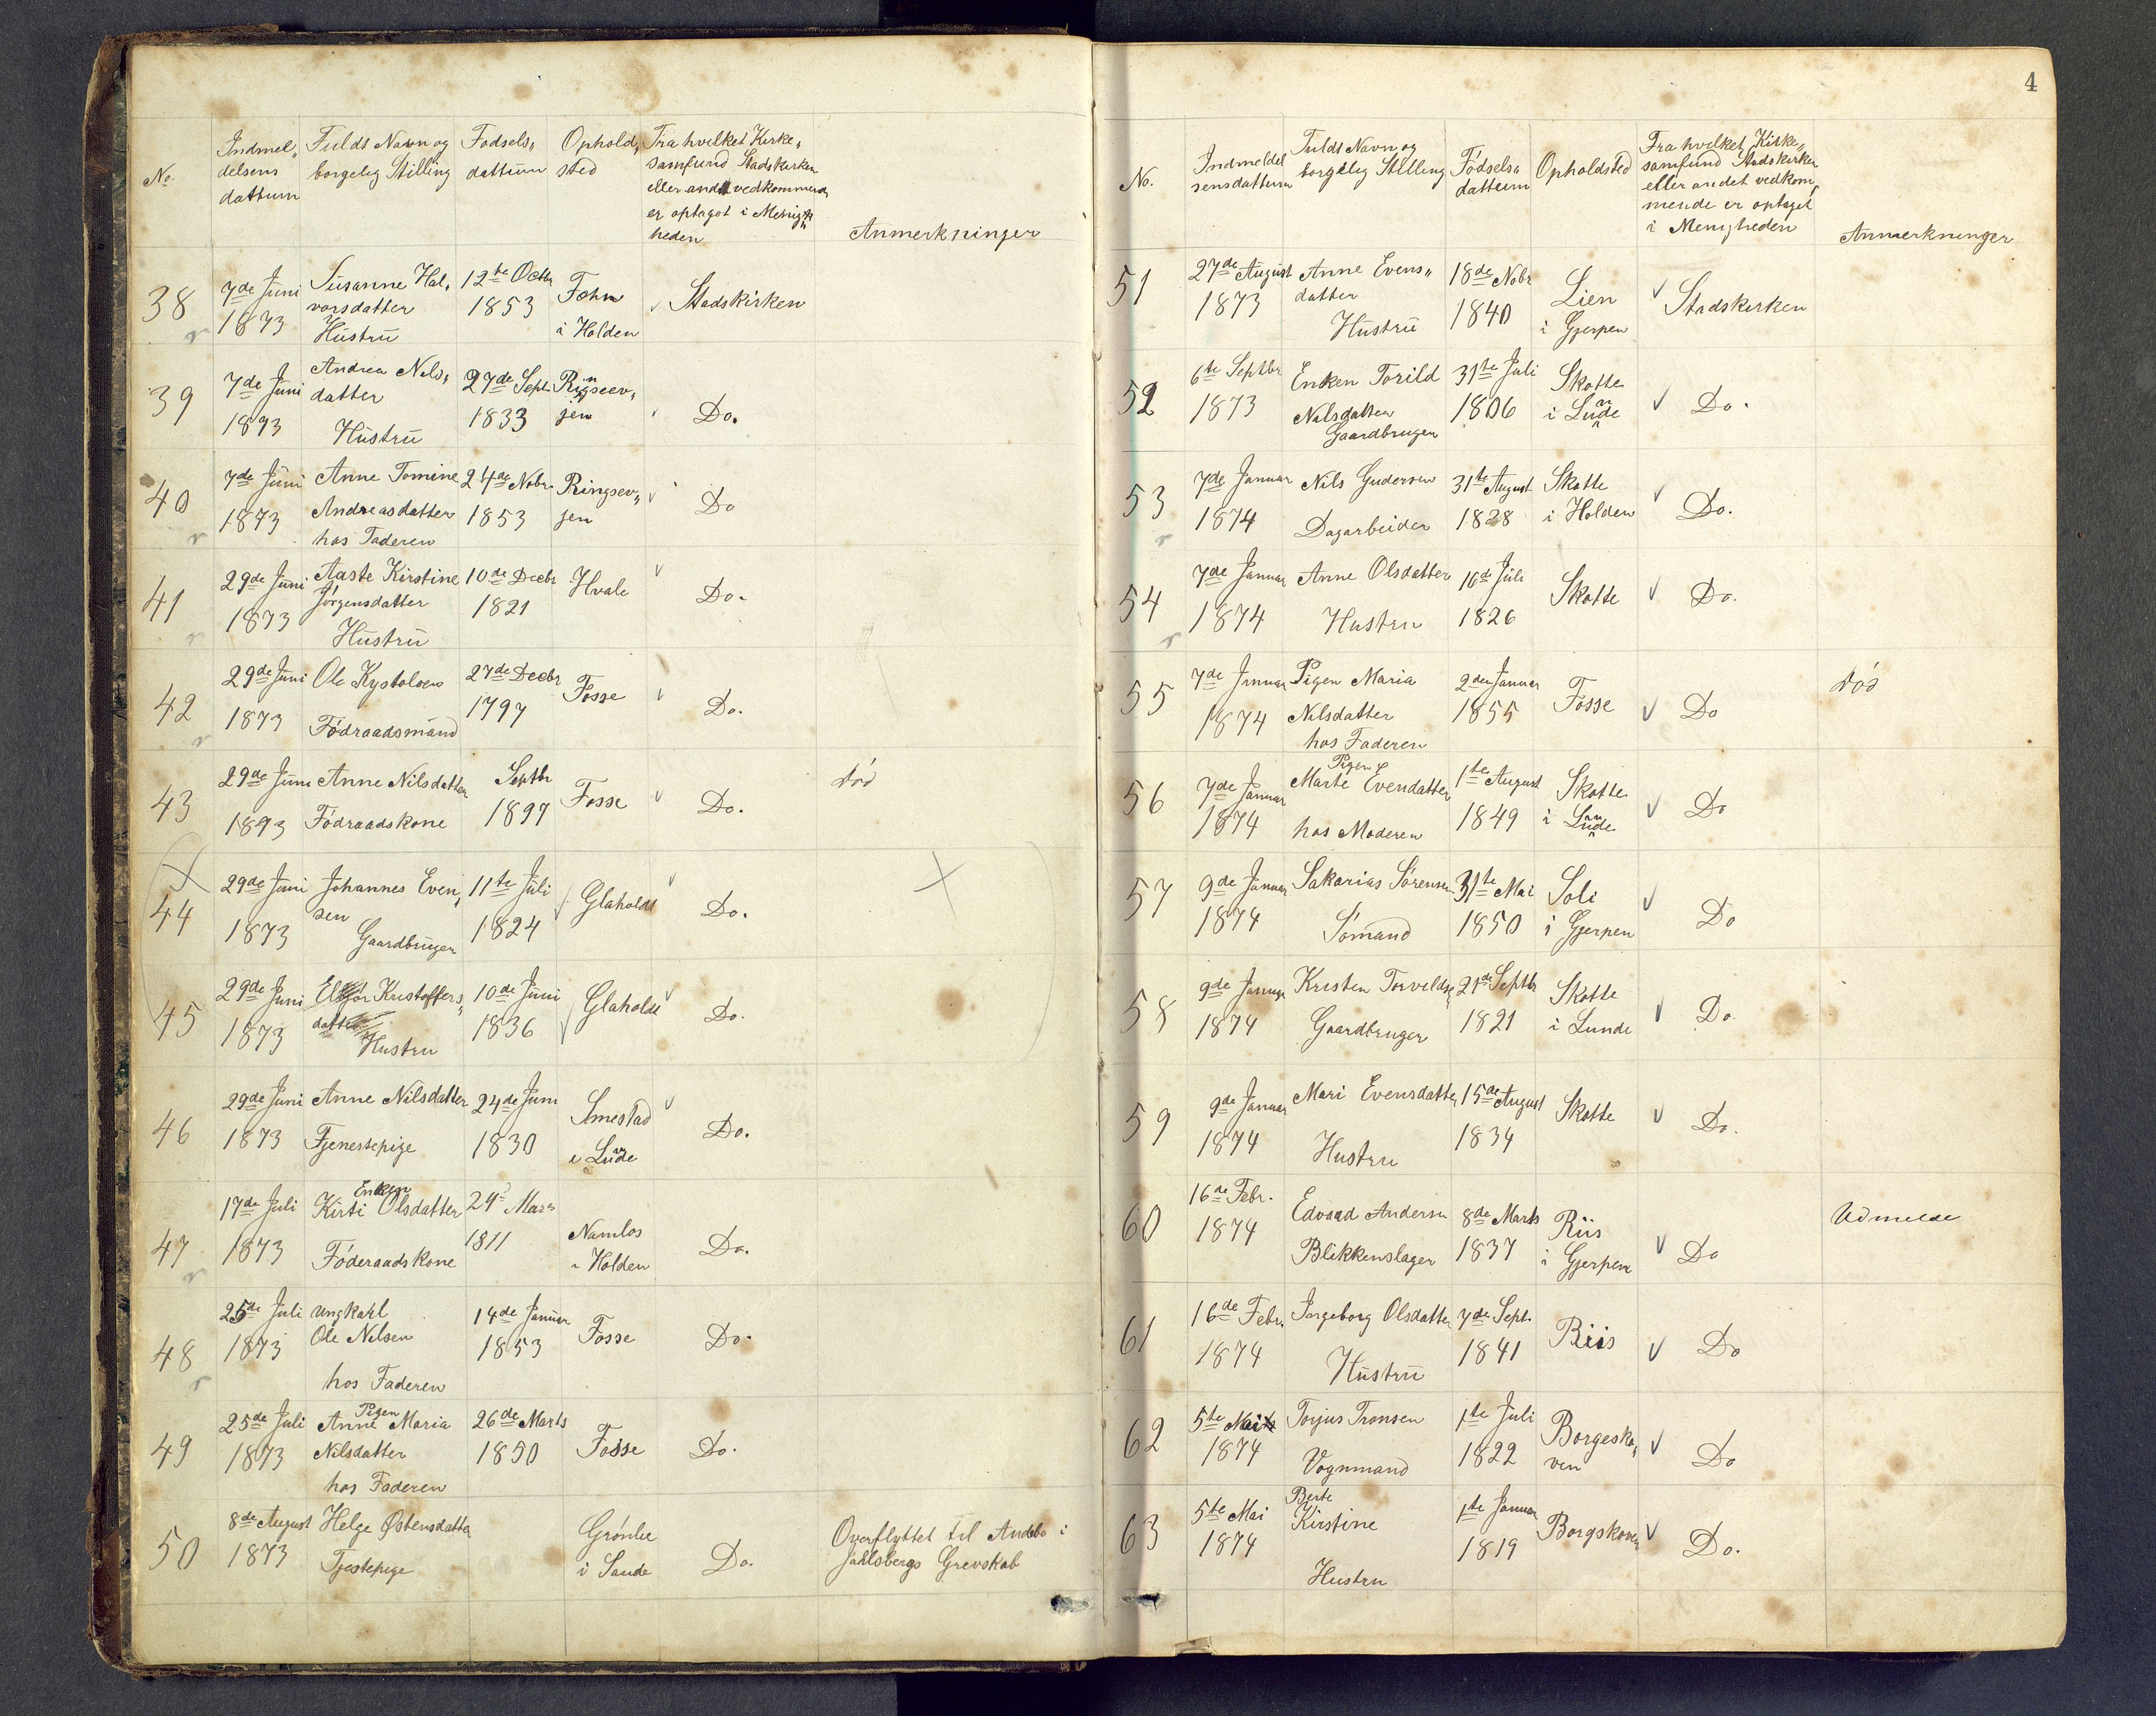 No. Indmel„ delsens dattum | Fuldt Navn og borgelig Stilling | Fødsels„ dattum | Ophold„ sted | Fra hvilket Kirke„ samfund Stadskirken eller andet vedkommende er optaget i Menig„ heden | Anmerkninger
38 | 7de Juni 1873 | Susanne Hal„ vorsdatter Hustru | 12te Octbr 1853 | i Holden | Stadskirken
39 | 7de Juni 1893 | Andrea Nils„ datter Hustru | 27de Sept. 1833 | Do.
40 | 7de Juni 1873 | Anne Tomine Andreasdatter hos Faderen | 24de Nobr. 1853 | Ringsev„ jen | Do
41 | 29de Juni 1873 | Aaste Kirstine Jørgensdatter Hustru | 10de Decbr 1821 | Hvale | Do.
42 | 29de Juni 1873 | Ole Kystolsen Födraadsmand | 27de Decbr 1797 | Fosse | Do.
43 | 29de Juni 1893 | Anne Nilsdatter Födraadskone | Septbr 1897 | Fosse | Do. | Död
44 | 29de Juni 1873 | Johannes Even„ sen Gaardbruger | 11te Juli 1824 | Glaholdt | Do.
45 | 29de Juni 1873 | Kristoffers„ datter Hustru | 10de Juni 1836 | Glaholdt | Do.
46 | 29de Juni 1873 | Anne Nilsdatter Tjenestepige | 24de Juni 1830 | Smestad i Lunde | Do.
47 | 17de Juli 1873 | Enken Kirti Olsdatter Föderaadskone | 24de Mars 1811 | Namlos i Holden | Do.
48 | 25de Juli 1873 | Ungkarl Ole Nilsen hos Faderen | 14de Januar 1853 | Fosse | Do.
49 | 25de Juli 1873 | Pigen Anne Maria Nilsdatter hos Faderen | 26de Marts 1850 | Fosse | Do.
50 | 8de August 1873 | Helge Østensdatter Tjestepige | Grönlie i Sande | Do. | Overflyttet til Andebo i Jahlsbergs Grevskab
4
No. | Indmeldel sensdattum | Fuldt Navn og borgelig Stilling | Födsels„ dattum | Opholdsted | Fra hvilket Kirke„ samfund Stadskirken eller andet vedkom„ mende er optaget i Menigheden | Anmerkninger
51 | 27de August 1873 | Anne Evens„ datter Hustru | 18de Nobr 1840 | Lien i Gjerpen | Stadskirken
52 | 6te Septbr 1873 | Enken Torild Nilsdatter Gaardbruger | 31te Juli 1806 | Skotte i Lunde | Do.
53 | 7de Januar 1874 | Nils Gudersen Dagarbeider | 31te August 1828 | Skotte i Holden | Do.
54 | 7de Januar 1874 | Anne Olsdatter Hustru | 16de Juli 1826 | Skotte | Do.
55 | 7de Januar 1874 | Pigen Maria Nilsdatter hos Faderen | 2den Januar 1855 | Fosse | Do | Död
56 | 7de Januar 1874 | Pigen Marte Evendatter hos Moderen | 1te August 1849 | Skotte i Lunde | Do
57 | 9de Januar 1874 | Sakarias Sörensen Sömand | 31te Mai 1850 | Soli i Gjerpen | Do
58 | 9de Januar 1874 | Kristen Torvelds Gaardbruger | 21de Septbr 1821 | Skotte i Lunde | Do
59 | 9de Januar 1874 | Mari Evensdatter Hustru | 15de August 1834 | Skotte | Do.
60 | 16de Febr. 1874 | Edvard Andersen Blikkenslager | 8de Marts 1837 | Riis i Gjerpen | Do | Udmelde
61 | 16de Febr. 1874 | Ingeborg Olsdatter Hustru | 7de Sept. 1841 | Riis | Do
62 | 5te Mai 1874 | Torjus Tronsen Vognmand | 1te Juli 1822 | Borgesko„ ven | Do
63 | 5te Mai 1874 | Berte Kirstine Hustru | 1te Januar 1819 | Borgskoven | Do.